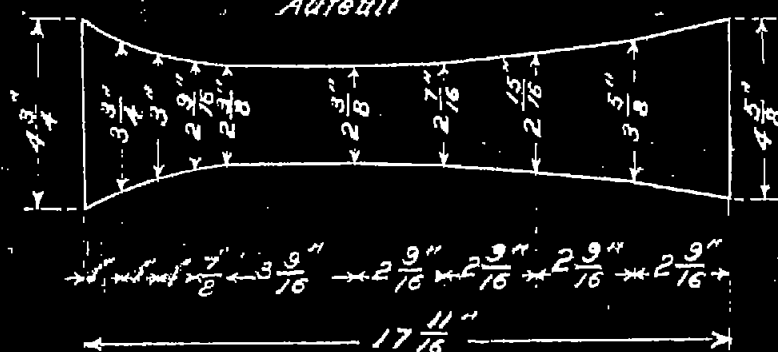 Auteuil
4 3/4" 3 3/4" 3" 2 9/16" 2 3/8" 2 3/8" 2 7/16" 2 15/16" 3 5/8" 4 5/8"
1" 1" 1" 7/8" 3 9/16" 2 9/16" 2 9/16" 2 9/16" 2 9/16"
17 11/16"